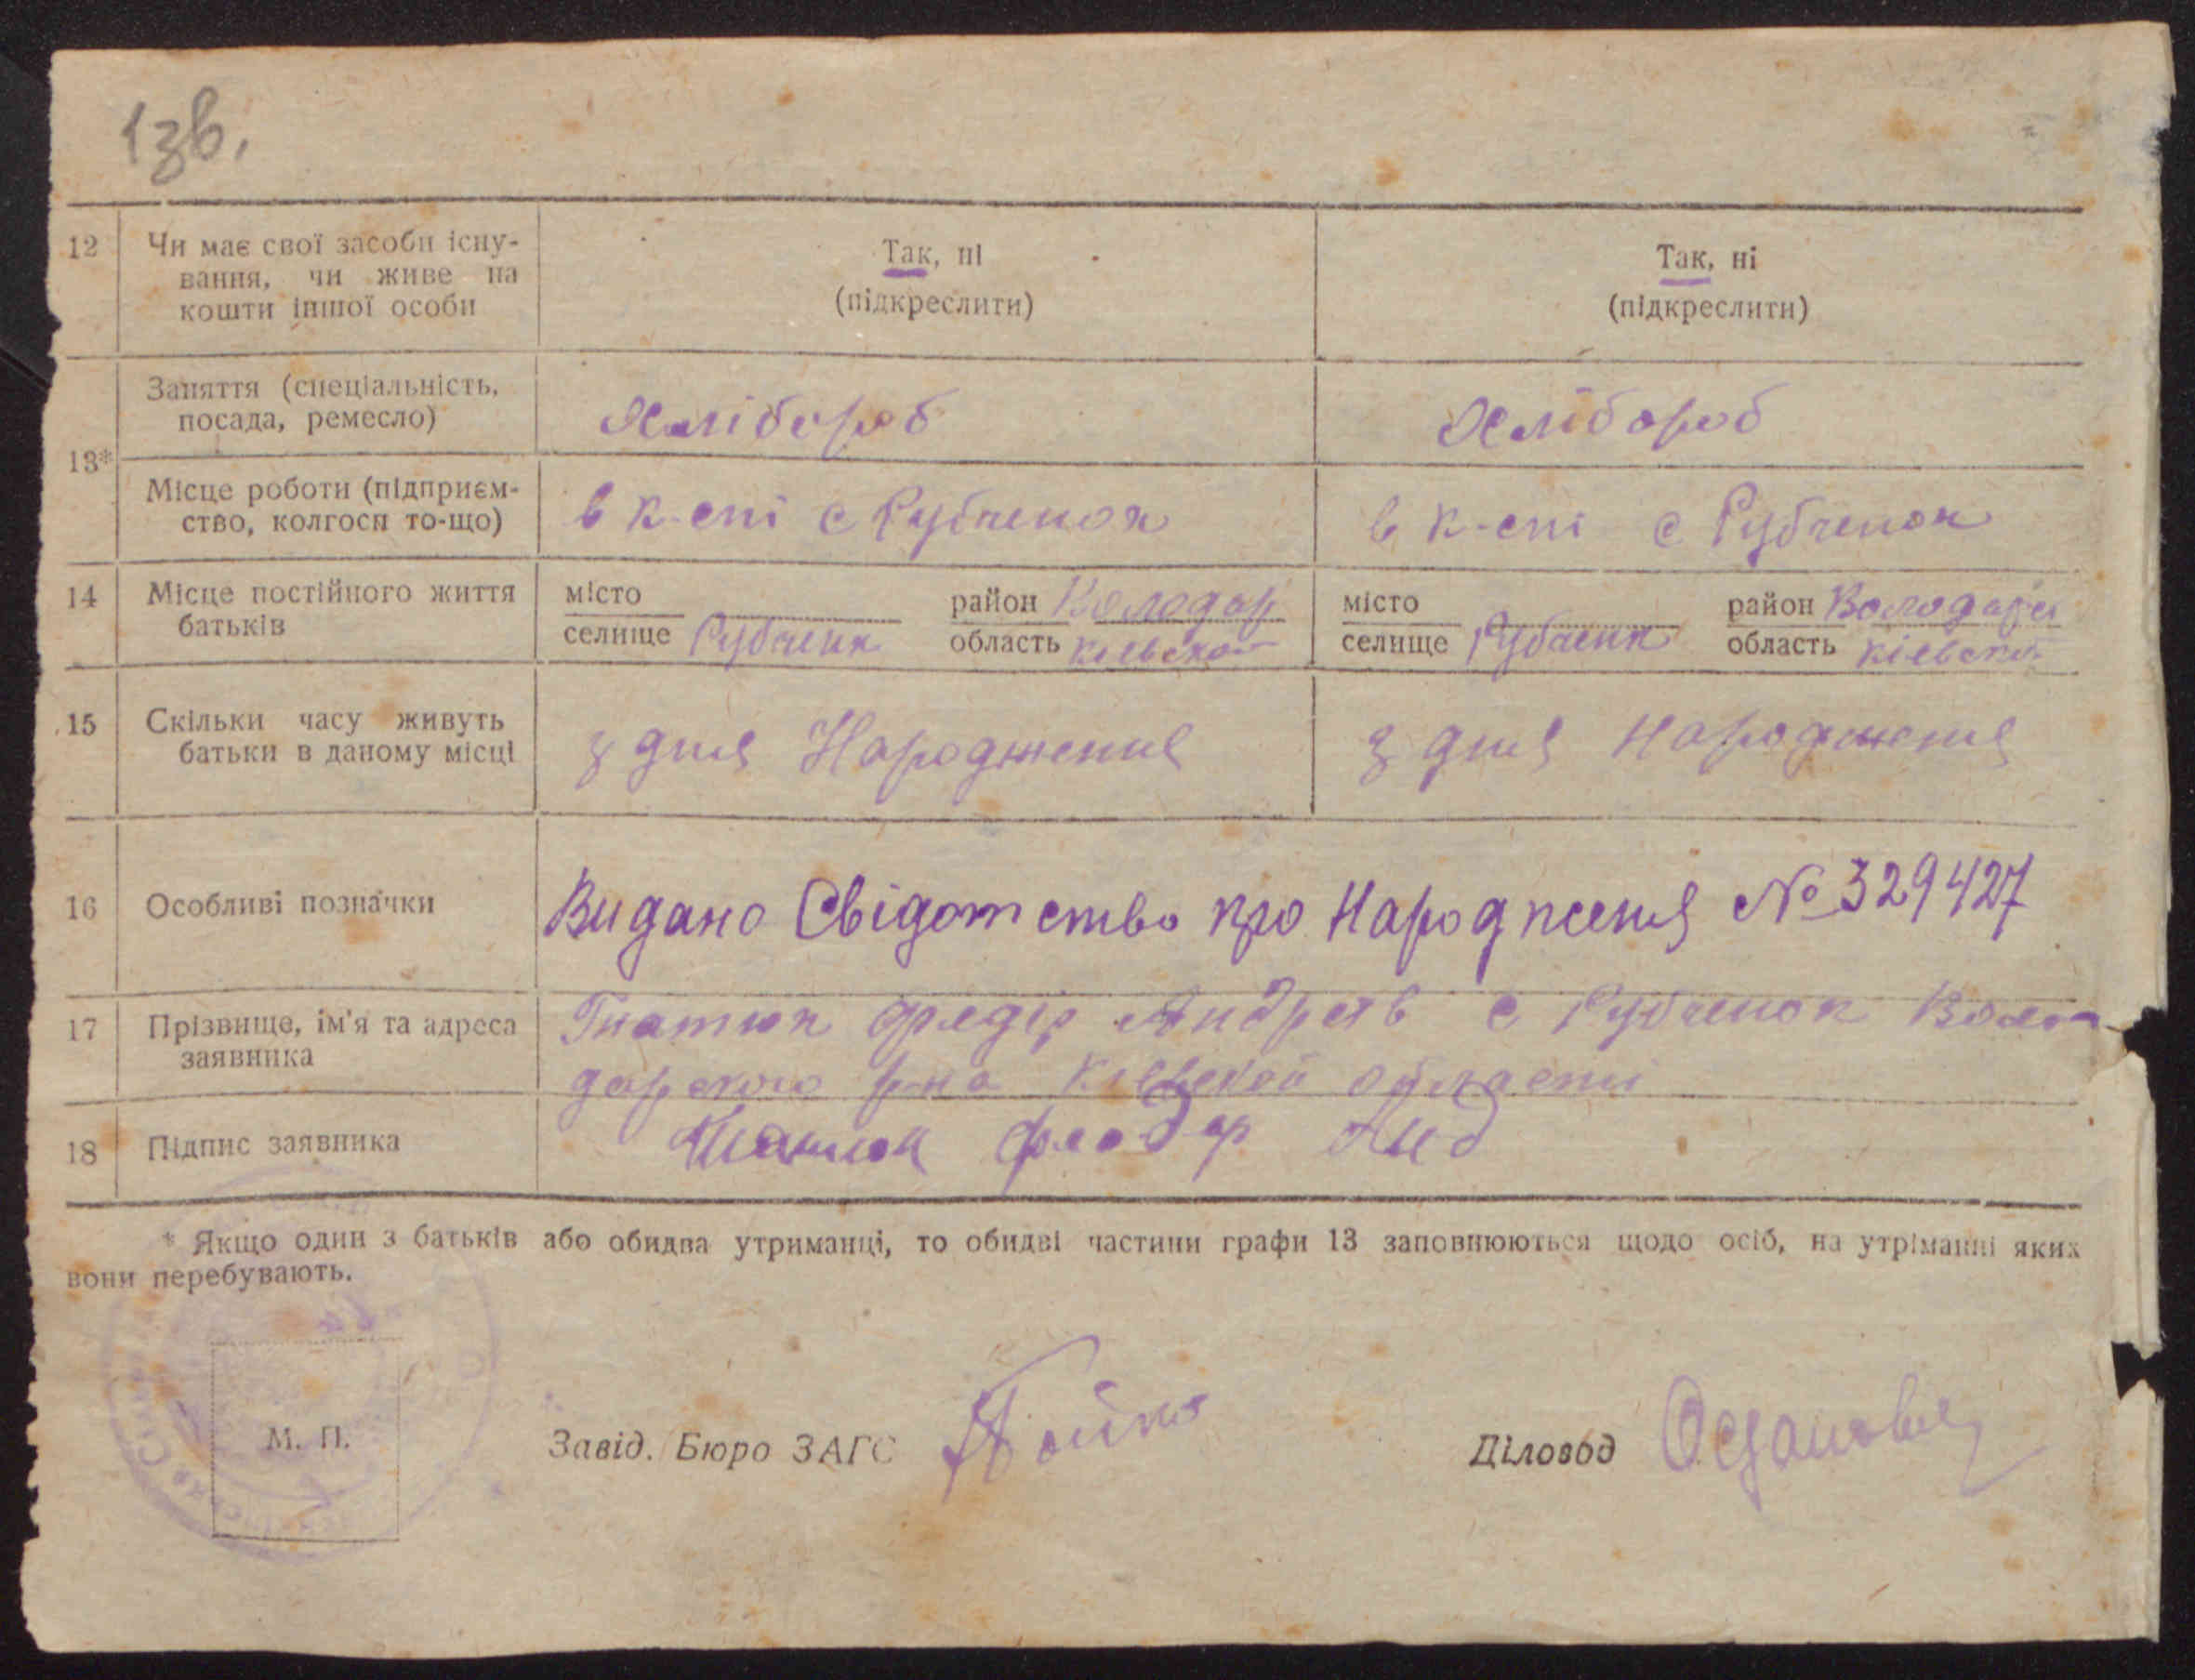 1зв.
12 Чи має свої засоби існу-
вання, чи живе на
кошти іншої особи
Так, ні
(підкреслити)
Так, ні
(підкреслити)
13*
Заняття (спеціальність,
посада, ремесло)
Хлібороб
Хлібороб
Місце роботи (підприєм-
ство, колгосп то-що)
в к-спі с Рубченок
в к-спі с Рубченок
14 Місце постійного життя
батьків
місто
селище Рубченк
район Володар
область Кієвской
місто
селище Рубченк
район Володар
область Кієвской
15 Скільки часу живуть
батьки в даному місці
з дня Народження
з дня Народження
16 Особливі позначки
Видано Свідотство про Народження № 329427
17 Прізвище, ім'я та адреса
заявника
Гнатюк Федір Андрєєв с Рубченок Воло
дарского р-на Кієвской области
18 Підпис заявника
Гнатюк Анд
* Якщо один з батьків або обидва утриманці, то обидві частини графи 13 заповнюються щодо осіб, на утріманні яких
вони перебувають.
М. П.
Завід. Бюро ЗАГС Бойко
Діловод